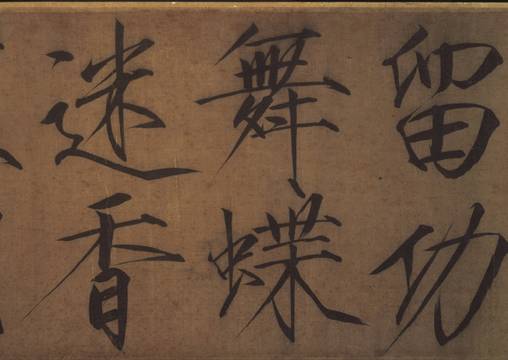 留功
舞蝶
迷香